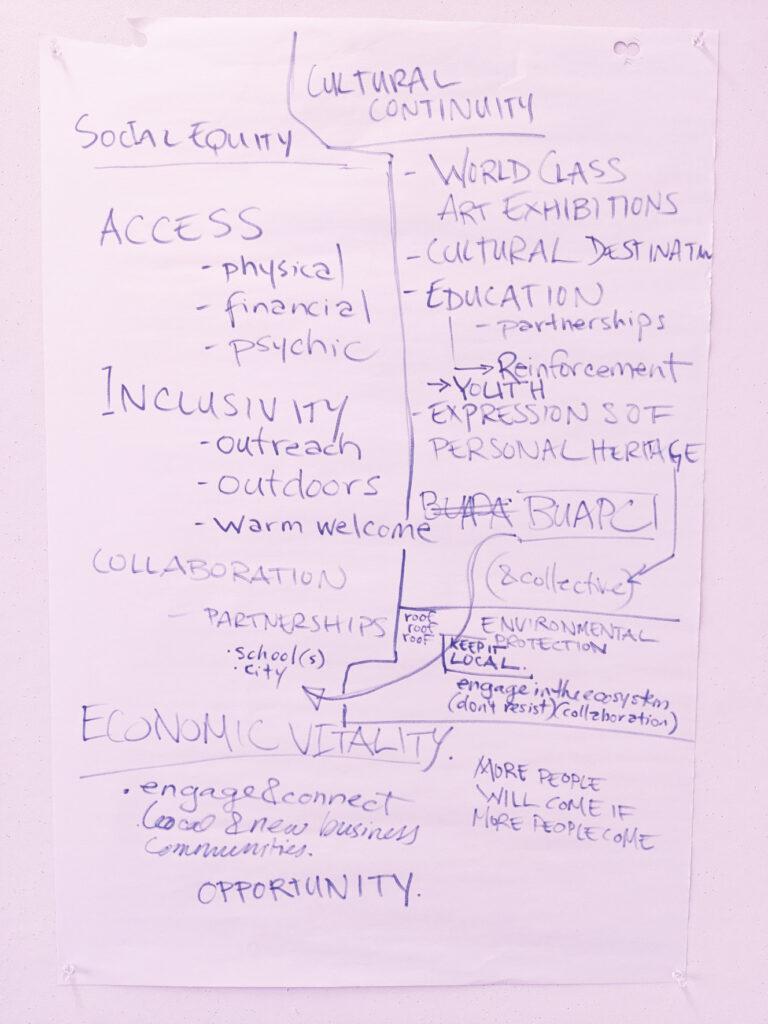 SOCIAL EQUITY
ACCESS
- physical
- financial
- psychic
INCLUSIVITY
- outreach
- outdoors
- warm welcome
COLLABORATION
- PARTNERSHIPS
· school(s)
· city
CULTURAL
CONTINUITY
- WORLD CLASS
ART EXHIBITIONS
- CULTURAL DESTINATN
- EDUCATION
- partnerships
→ Reinforcement
→ YOUTH
- EXPRESSIONS OF
PERSONAL HERITAGE
BUAPA BUAPCI
(& collective)
roof
roof
roof
ENVIRONMENTAL
PROTECTION
KEEP IT
LOCAL.
engage in the ecosystem
(don't resist) (collaboration)
ECONOMIC VITALITY.
· engage & connect
local & new business
communities.
OPPORTUNITY.
MORE PEOPLE
WILL COME IF
MORE PEOPLE COME